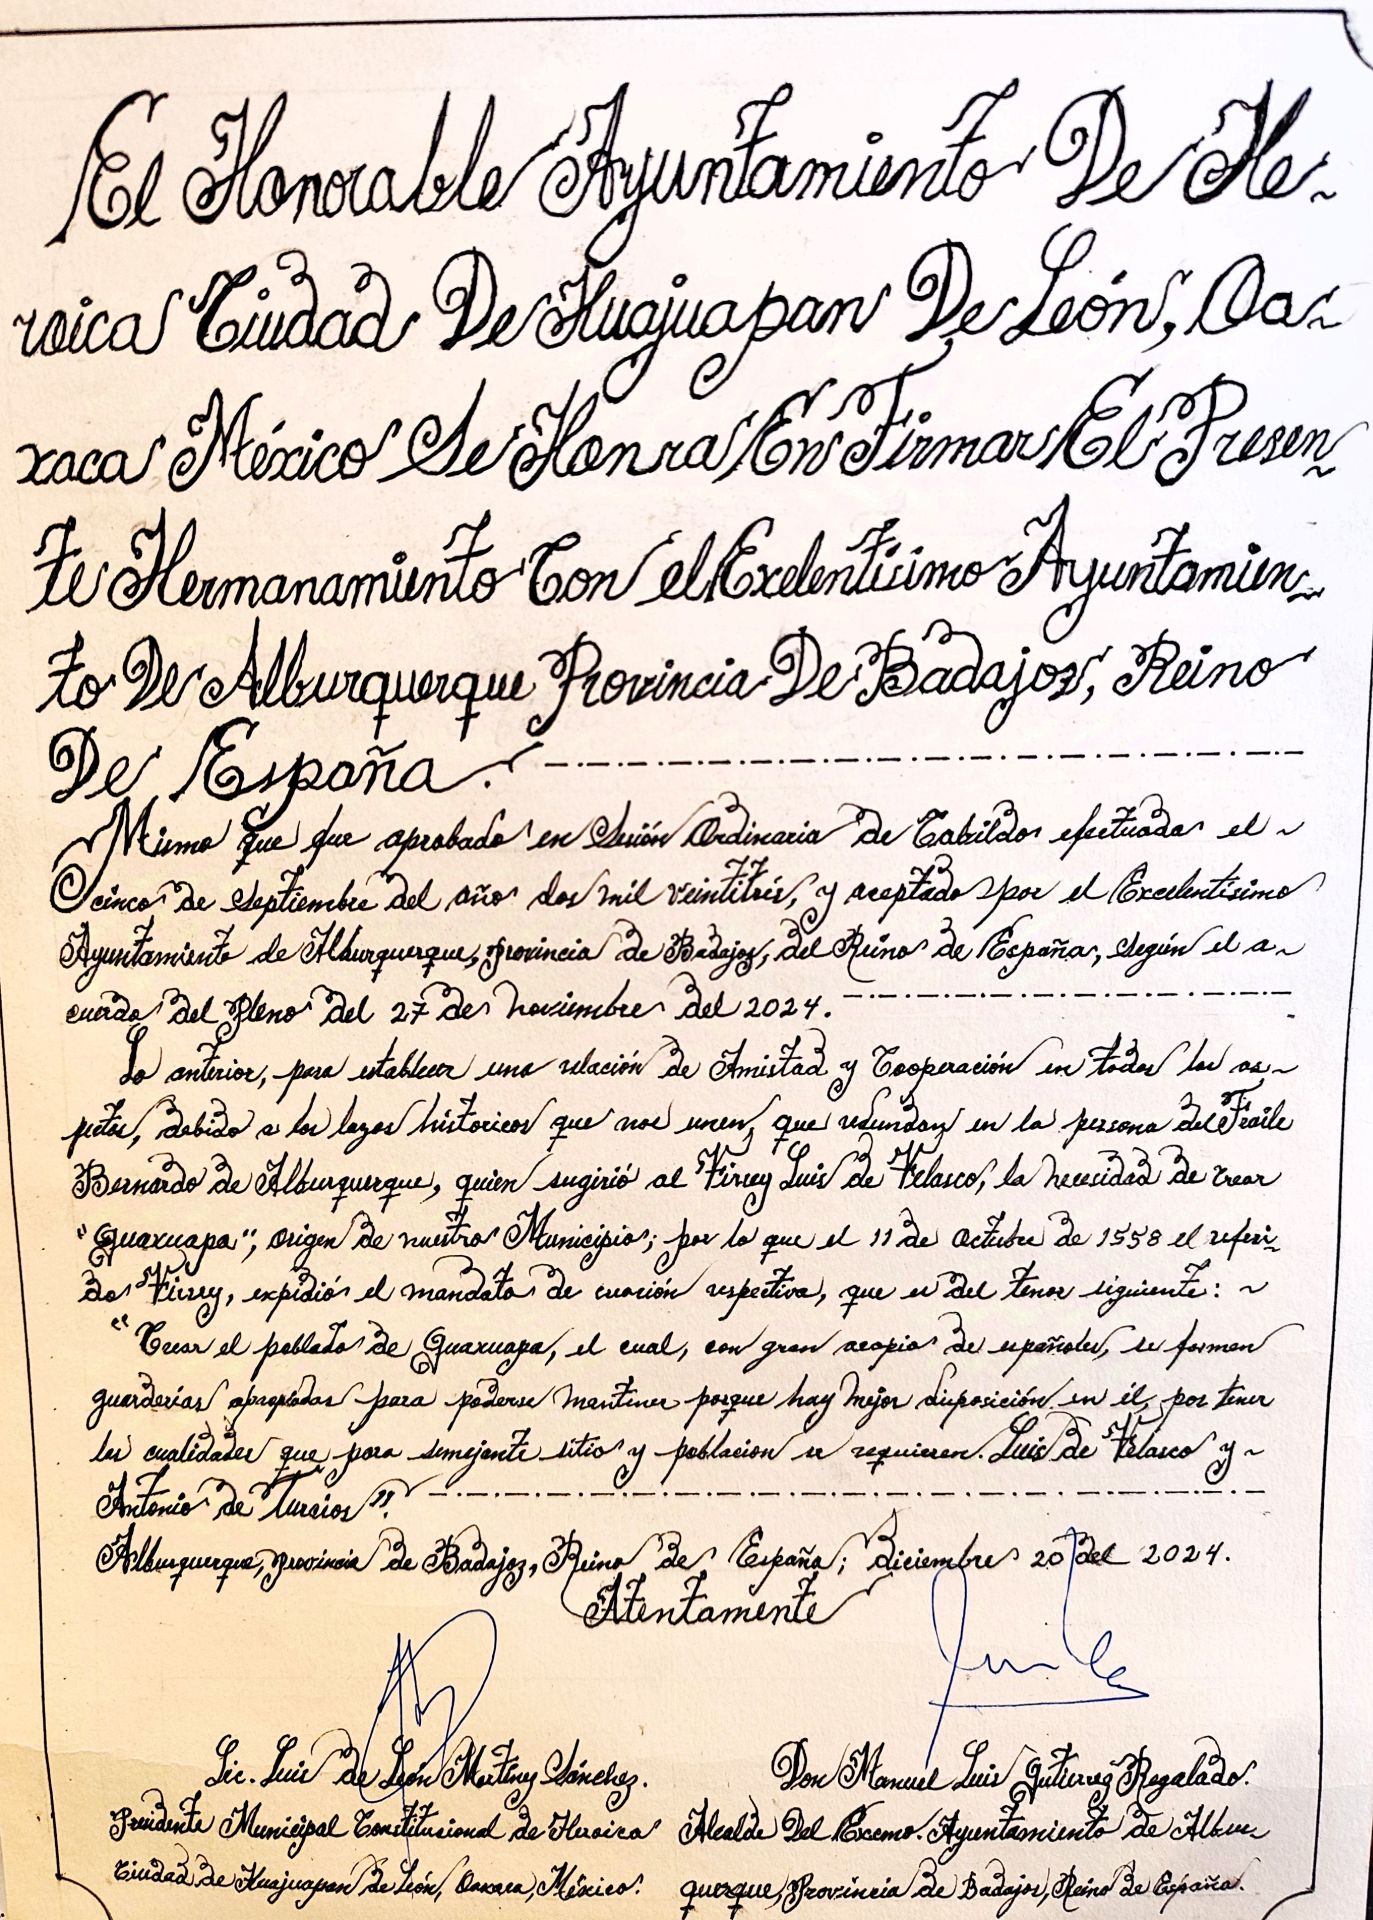 El Honorable Ayuntamiento De He~
roica Ciudad De Huajuapan De León, Oa~
xaca México Se Honra En Firmar El Presen~
te Hermanamiento Con el Exelentísimo Ayuntamien~
to De Alburquerque Provincia De Badajoz, Reino
De España.
Mismo que fue aprobado en Sesión Ordinaria de Cabildo efectuada el ~
cinco de Septiembre del año dos mil veintitrés, y aceptado por el Excelentísimo
Ayuntamiento de Alburquerque, provincia de Badajoz, del Reino de España, según el a~
cuerdo del Pleno del 27 de noviembre del 2024.
Lo anterior, para establecer una relación de Amistad y Cooperación en todos los as~
pectos, debido a los lazos historicos que nos unen, que redundan en la persona del Fraile
Bernardo de Alburquerque, quien sugirió al Virrey Luis de Velasco, la necesidad de crear
"Guaxuapa", origen de nuestro Municipio; por lo que el 11 de octubre de 1558 el referi~
do Virrey, expidió el mandato de creación respectiva, que es del tenor siguiente: ~
"Crear el poblado de Guaxuapa, el cual, con gran acopio de españoles, se forman
guarderías apropiadas para poderse mantener porque hay mejor disposición en él, por tener
las cualidades que para semejante sitio y poblacion se requieren. Luis de Velasco y ~
Antonio de Turcios".
Alburquerque, provincia de Badajoz, Reino de España; diciembre 20 del 2024.
Atentamente
Lic. Luis de León Martínez Sánchez.
Don Manuel Luis Gutierrez Regalado.
Presidente Municipal Constitucional de Heroica
Alcalde Del Excmo. Ayuntamiento de Albur~
Ciudad de Huajuapan de León, Oaxaca, México.
querque, Provincia de Badajoz, Reino de España.